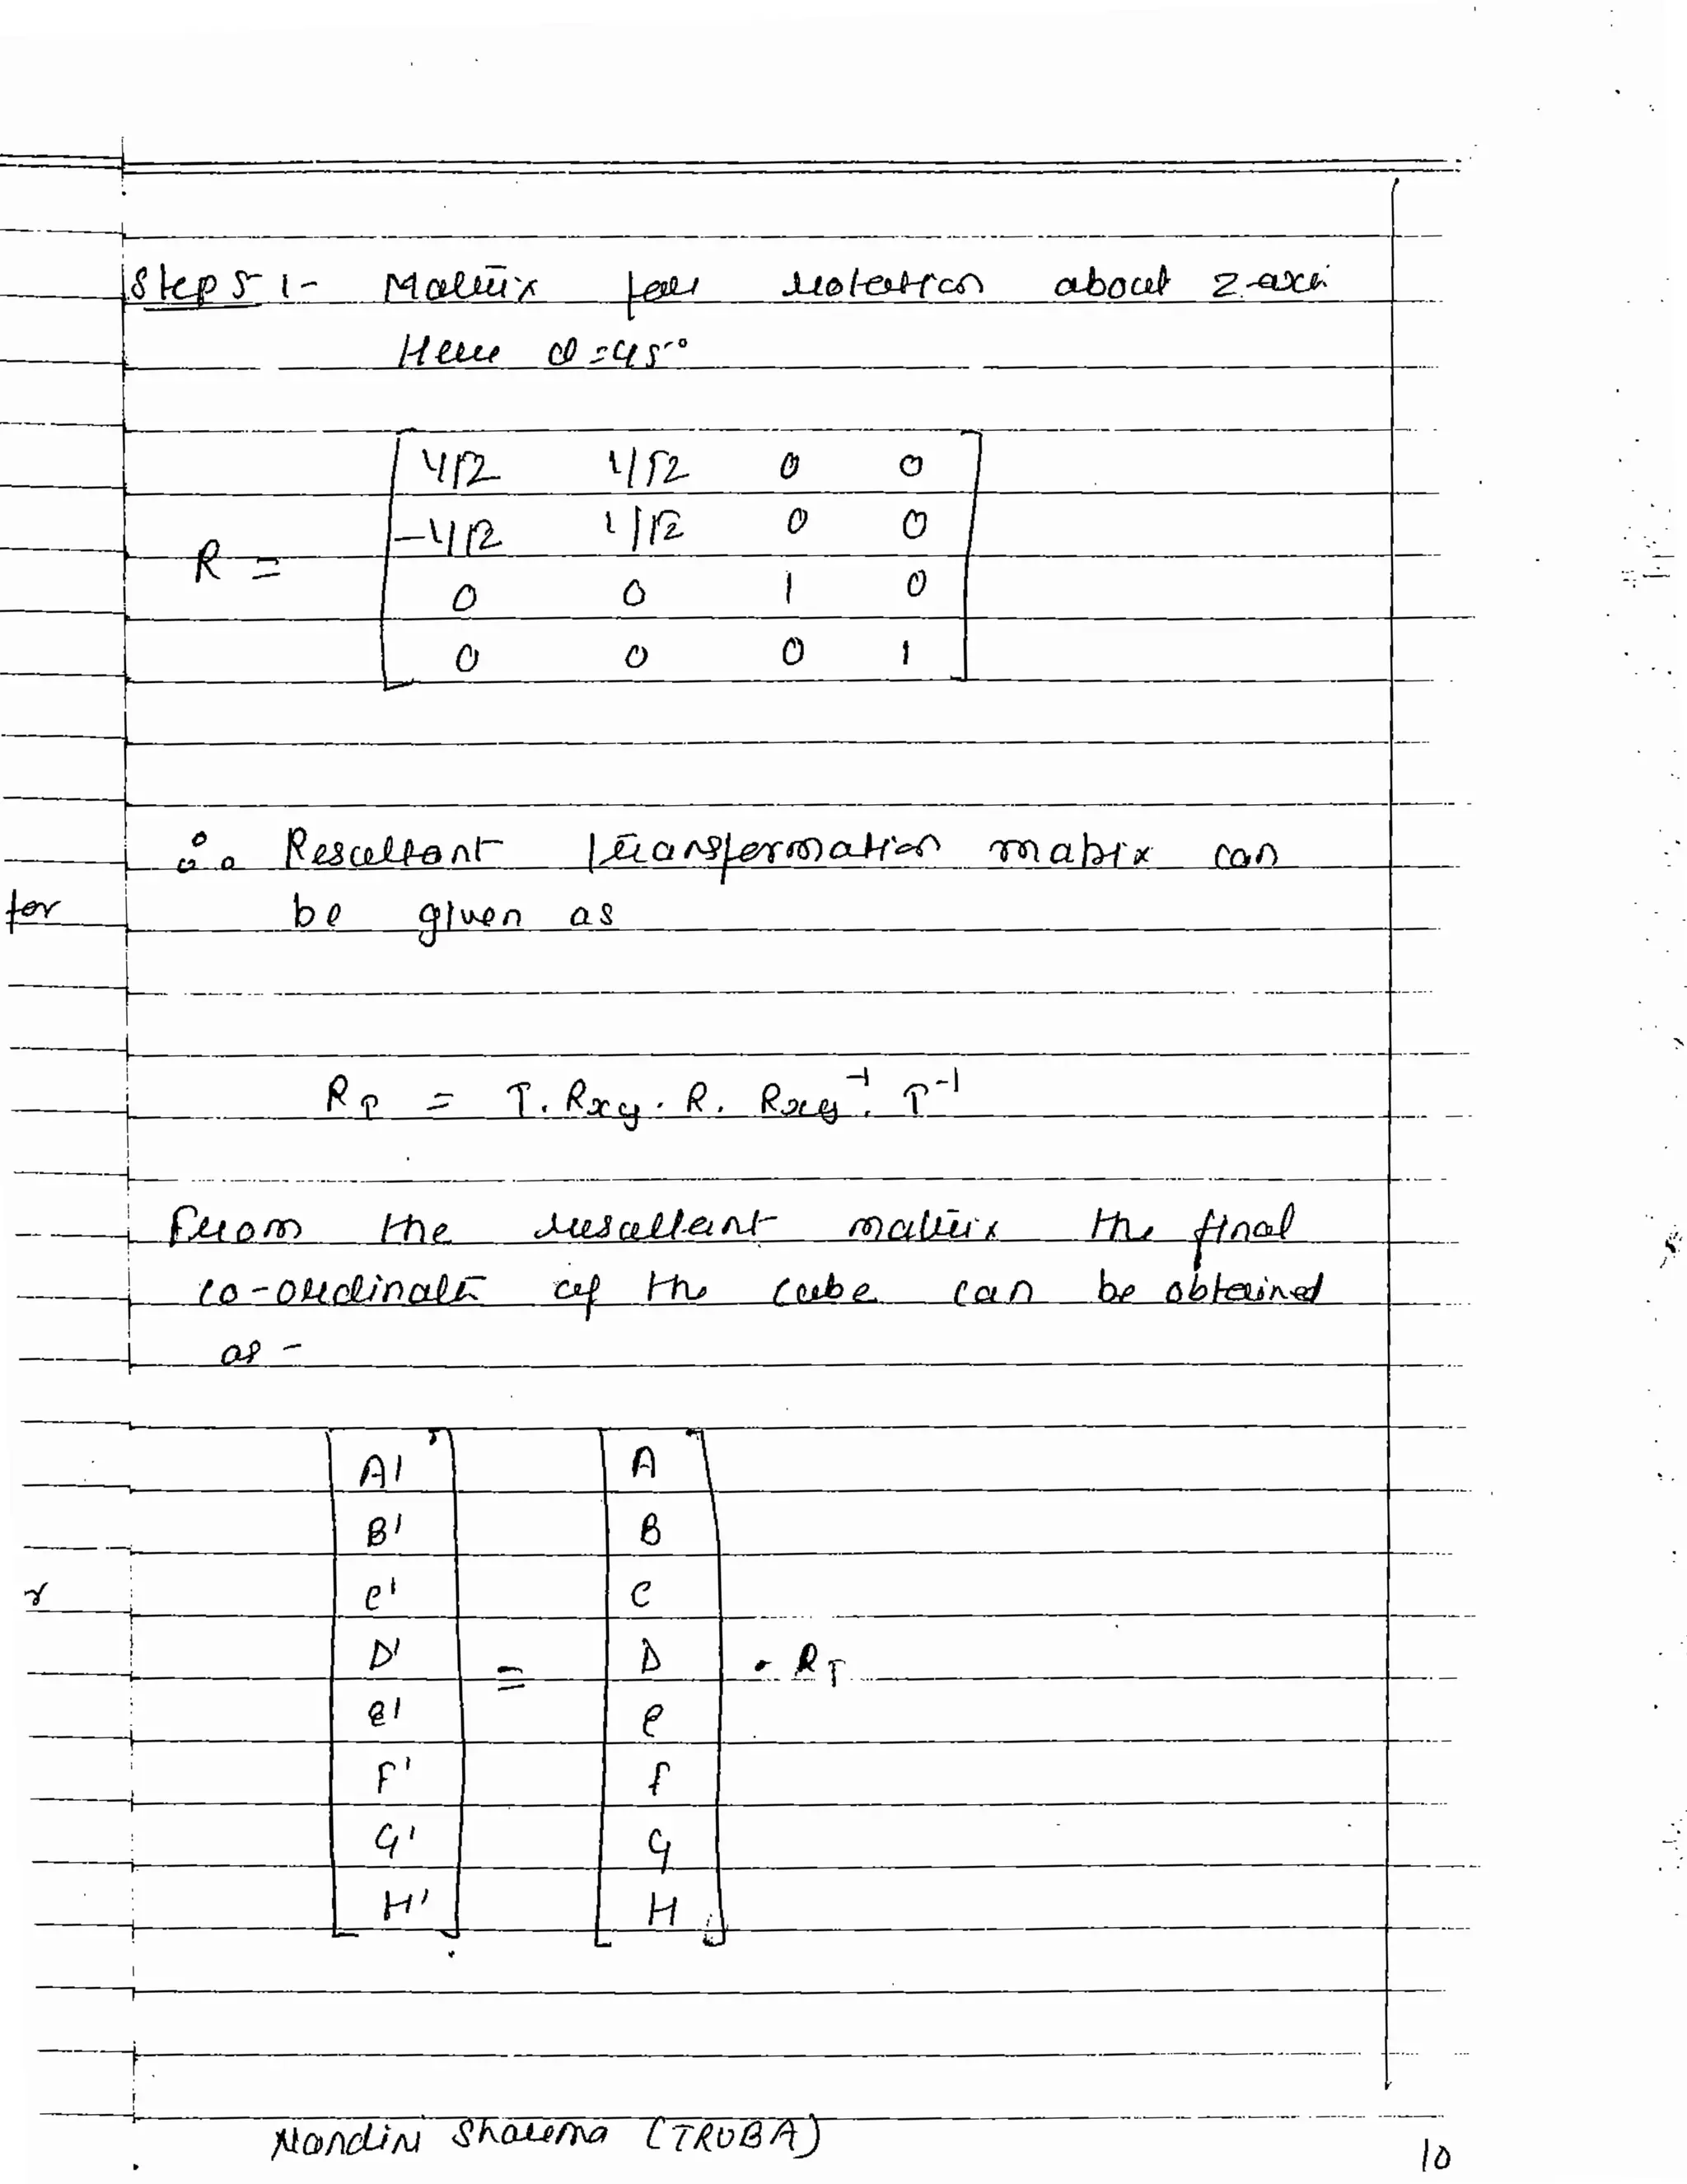 Step 5 :- Matrix for rotation about z-axis
Here θ = 45°
1/√2 1/√2 0 0
-1/√2 1/√2 0 0
R =
0 0 1 0
0 0 0 1
∴ Resultant transformation matrix can
for
be given as
R_T = T . Rxy . R . Rxy⁻¹ . T⁻¹
From the resultant matrix the final
co-ordinate of the cube can be obtained
as -
A' A
B' B
r
C' C
D' = D . R_T
E' E
F' F
G' G
H' H
Nandini Sharma (TRUBA)
10